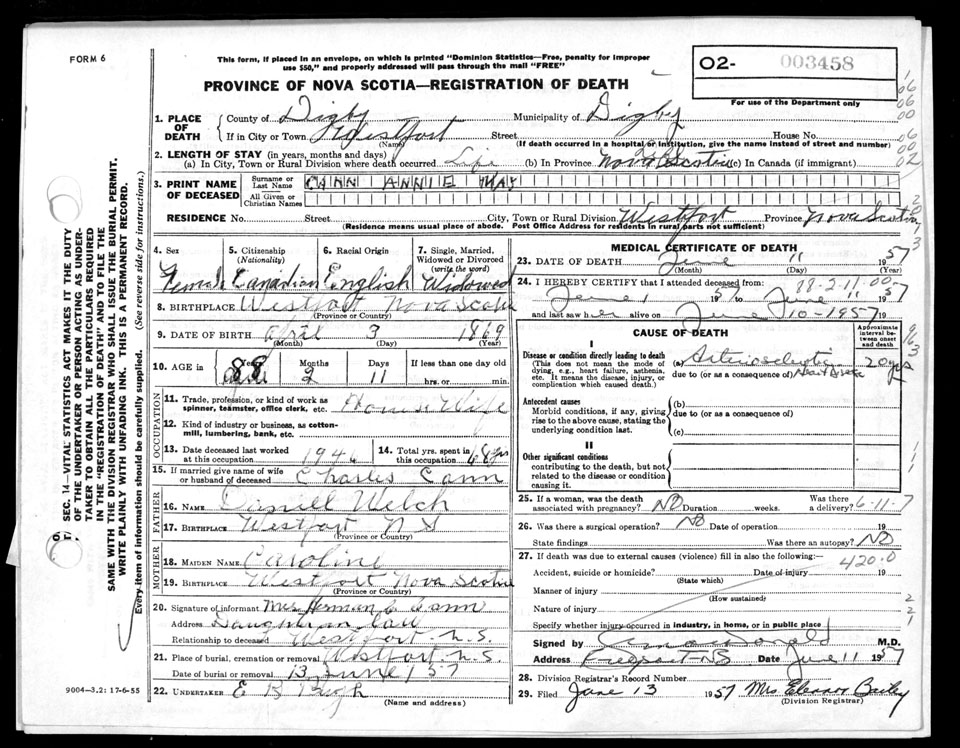 FORM 6
This form, if placed in an envelope, on which is printed "Dominion Statistics—Free, penalty for improper
use $50," and properly addressed will pass through the mail "FREE"
PROVINCE OF NOVA SCOTIA—REGISTRATION OF DEATH
O2- 003458
For use of the Department only
1. PLACE OF DEATH { County of Digby Municipality of Digby
If in City or Town Westport Street House No.
(Name) (If death occurred in a hospital or institution, give the name instead of street and number)
2. LENGTH OF STAY (in years, months and days)
(a) In City, Town or Rural Division where death occurred Life (b) In Province Nova Scotia (c) In Canada (if immigrant)
3. PRINT NAME OF DECEASED { Surname or Last Name CANN ANNIE MAY
All Given or Christian Names
RESIDENCE No. Street City, Town or Rural Division Westport Province Nova Scotia
(Residence means usual place of abode. Post Office Address for residents in rural parts not sufficient)
4. Sex 5. Citizenship (Nationality) 6. Racial Origin 7. Single, Married, Widowed or Divorced (write the word)
Female Canadian English Widowed
8. BIRTHPLACE Westport Nova Scotia
(Province or Country)
9. DATE OF BIRTH April 3 1869
(Month) (Day) (Year)
10. AGE in { Years Months Days If less than one day old
88 2 11 hrs. or min.
OCCUPATION
11. Trade, profession, or kind of work as spinner, teamster, office clerk, etc. House Wife
12. Kind of industry or business, as cotton-mill, lumbering, bank, etc.
13. Date deceased last worked at this occupation 1946 14. Total yrs. spent in this occupation 68 yrs
15. If married give name of wife or husband of deceased Charles Cann
FATHER
16. NAME Welch
17. BIRTHPLACE Westport N S
(Province or Country)
MOTHER
18. MAIDEN NAME Caroline
19. BIRTHPLACE Westport Nova Scotia
(Province or Country)
20. Signature of informant Mrs Herman C Cann
Address Daughter in Law
Relationship to deceased Westport N.S.
21. Place of burial, cremation or removal Westport N.S.
Date of burial or removal 13 June 1957
22. UNDERTAKER E B
(Name and address)
MEDICAL CERTIFICATE OF DEATH
23. DATE OF DEATH June 11 1957
(Month) (Day) (Year)
24. I HEREBY CERTIFY that I attended deceased from: 88-2-11-00
June 1 1957 to June 11 1957
and last saw her alive on June 10-1957
CAUSE OF DEATH
Approximate interval between onset and death
I
Disease or condition directly leading to death (a) Arteriosclerotic 20 yrs
(This does not mean the mode of dying, e.g., heart failure, asthenia, etc. It means the disease, injury, or complication which caused death.)
due to (or as a consequence of) Heart Disease
Antecedent causes (b)
Morbid conditions, if any, giving rise to the above cause, stating the underlying condition last.
due to (or as a consequence of)
(c)
II
Other significant conditions
contributing to the death, but not related to the disease or condition causing it.
25. If a woman, was the death associated with pregnancy? NO Duration weeks. Was there a delivery? 6-11-7
26. Was there a surgical operation? NO Date of operation 19
State findings Was there an autopsy? NO
27. If death was due to external causes (violence) fill in also the following:— 420.0
Accident, suicide or homicide? Date of injury 19
(State which)
Manner of injury
(How sustained)
Nature of injury
Specify whether injury occurred in industry, in home, or in public place
Signed by M.D.
Address Freeport NS Date June 11 1957
28. Division Registrar's Record Number
29. Filed June 13 1957 Mrs Eleanor Bailey
(Division Registrar)
SEC. 14—VITAL STATISTICS ACT MAKES IT THE DUTY
OF THE UNDERTAKER OR PERSON ACTING AS UNDER-
TAKER TO OBTAIN ALL THE PARTICULARS REQUIRED
IN THE "REGISTRATION OF DEATH" AND TO FILE THE
SAME WITH THE DIVISION REGISTRAR WHO SHALL ISSUE THE BURIAL PERMIT.
WRITE PLAINLY WITH UNFADING INK. THIS IS A PERMANENT RECORD.
Every item of information should be carefully supplied. (See reverse side for instructions.)
9004-3.2: 17-6-55